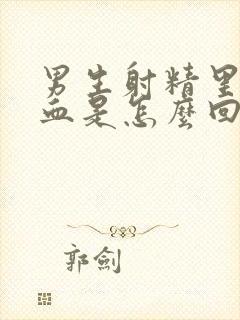 男生射精里
血是怎麼回
郭劍